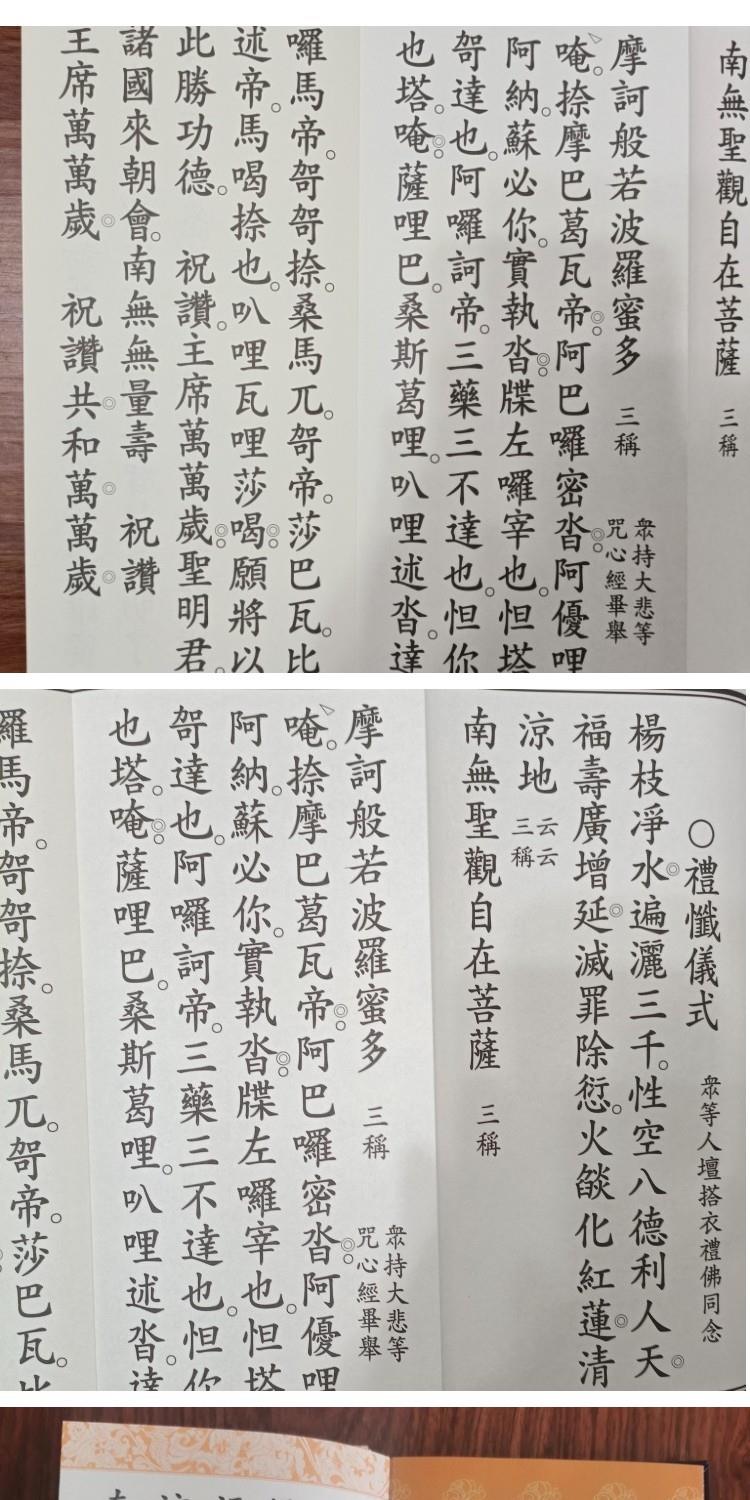 南無聖觀自在菩薩 三稱
摩訶般若波羅蜜多 三稱 眾持大悲等
咒心經畢舉
唵。捺摩巴葛瓦帝阿巴囉密沓阿優哩
阿納。蘇必你。實執沓牒左囉宰也。怛塔
哿達也。阿囉訶帝。三藥三不達也。怛你
也塔。唵薩哩巴。桑斯葛哩。叭哩述沓。達
囉馬帝。哿哿捺。桑馬兀。哿帝。莎巴瓦。比
述帝。馬喝捺也。叭哩瓦哩莎喝願將以
此勝功德。 祝讚。主席萬萬歲聖明君。
諸國來朝會。南無無量壽 祝讚
王席萬萬歲 祝讚共和萬萬歲
○禮懺儀式 眾等人壇搭衣禮佛同念
楊枝凈水遍灑三千。性空八德利人天
福壽廣增延滅罪除愆。火燄化紅蓮清
涼地 云云
三稱
南無聖觀自在菩薩 三稱
摩訶般若波羅蜜多 三稱 眾持大悲等
咒心經畢舉
唵。捺摩巴葛瓦帝阿巴囉密沓阿優哩
阿納。蘇必你。實執沓牒左囉宰也。怛塔
哿達也。阿囉訶帝。三藥三不達也。怛你
也塔。唵薩哩巴。桑斯葛哩。叭哩述沓。達
羅馬帝。哿哿捺。桑馬兀。哿帝。莎巴瓦。比